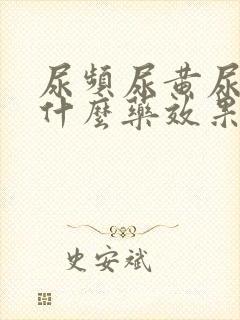 尿頻尿黃尿
什麼藥效果
史安斌